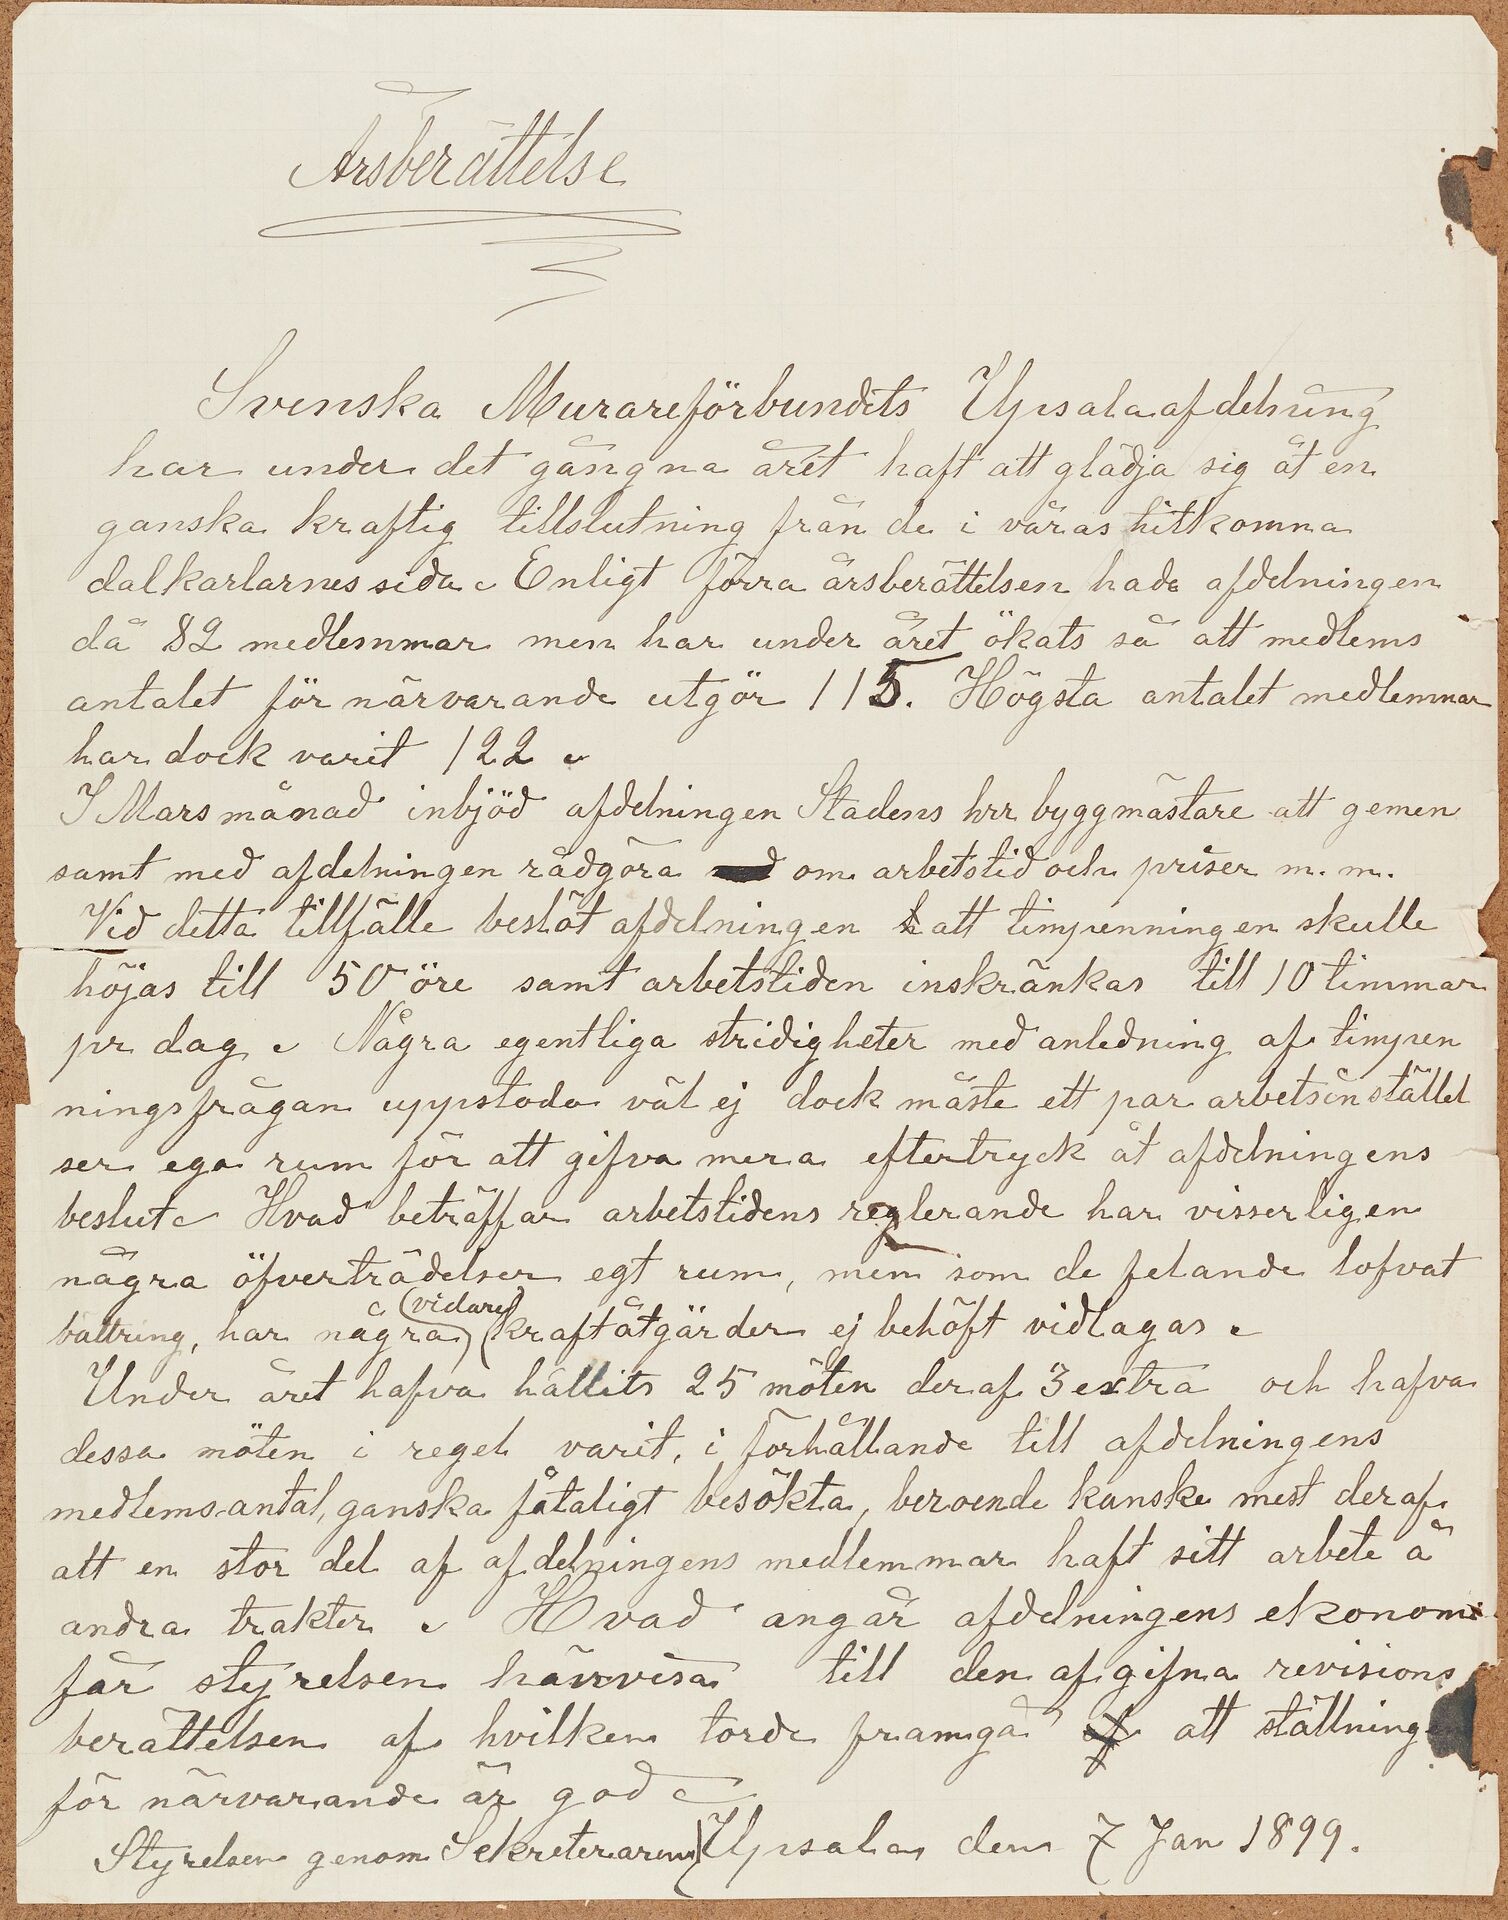 Årsberättelse
Svenska Murareförbundets Upsalaafdelning
har under det gångna året haft att glädja sig åt en
ganska kraftig tillslutning från de i våras hitkomna
dalkarlarnes sida. Enligt förra årsberättelsen hade afdelningen
då 82 medlemmar men har under året ökats så att medlems
antalet för närvarande utgör 115. Högsta antalet medlemmar
har dock varit 122.
I Mars månad inbjöd afdelningen Stadens hrr byggmästare att gemen
samt med afdelningen rådgöra om arbetstid och priser m. m.
Vid detta tillfälle beslöt afdelningen att timpenningen skulle
höjas till 50 öre samt arbetstiden inskränkas till 10 timmar
pr dag. Några egentliga stridigheter med anledning af timpen
ningsfrågan uppstodo väl ej dock måste ett par arbetsinställel
ser ega rum för att gifva mera eftertryck åt afdelningens
beslut. Hvad beträffar arbetstidens reglerande har visserligen
några öfverträdelser egt rum, men som de felande lofvat
bättring, har några (vidare) kraftåtgärder ej behöft vidtagas.
Under året hafva hållits 25 möten deraf 3 extra och hafva
dessa möten i regel varit, i förhållande till afdelningens
medlemsantal, ganska fåtaligt besökta, beroende kanske mest deraf
att en stor del af afdelningens medlemmar haft sitt arbete å
andra trakter. Hvad angår afdelningens ekonomi
får styrelsen hänvisa till den afgifna revisions
berättelsen af hvilken torde framgå att ställningen
för närvarande är god.
Styrelsen genom Sekreteraren Upsala den 7 Jan 1899.